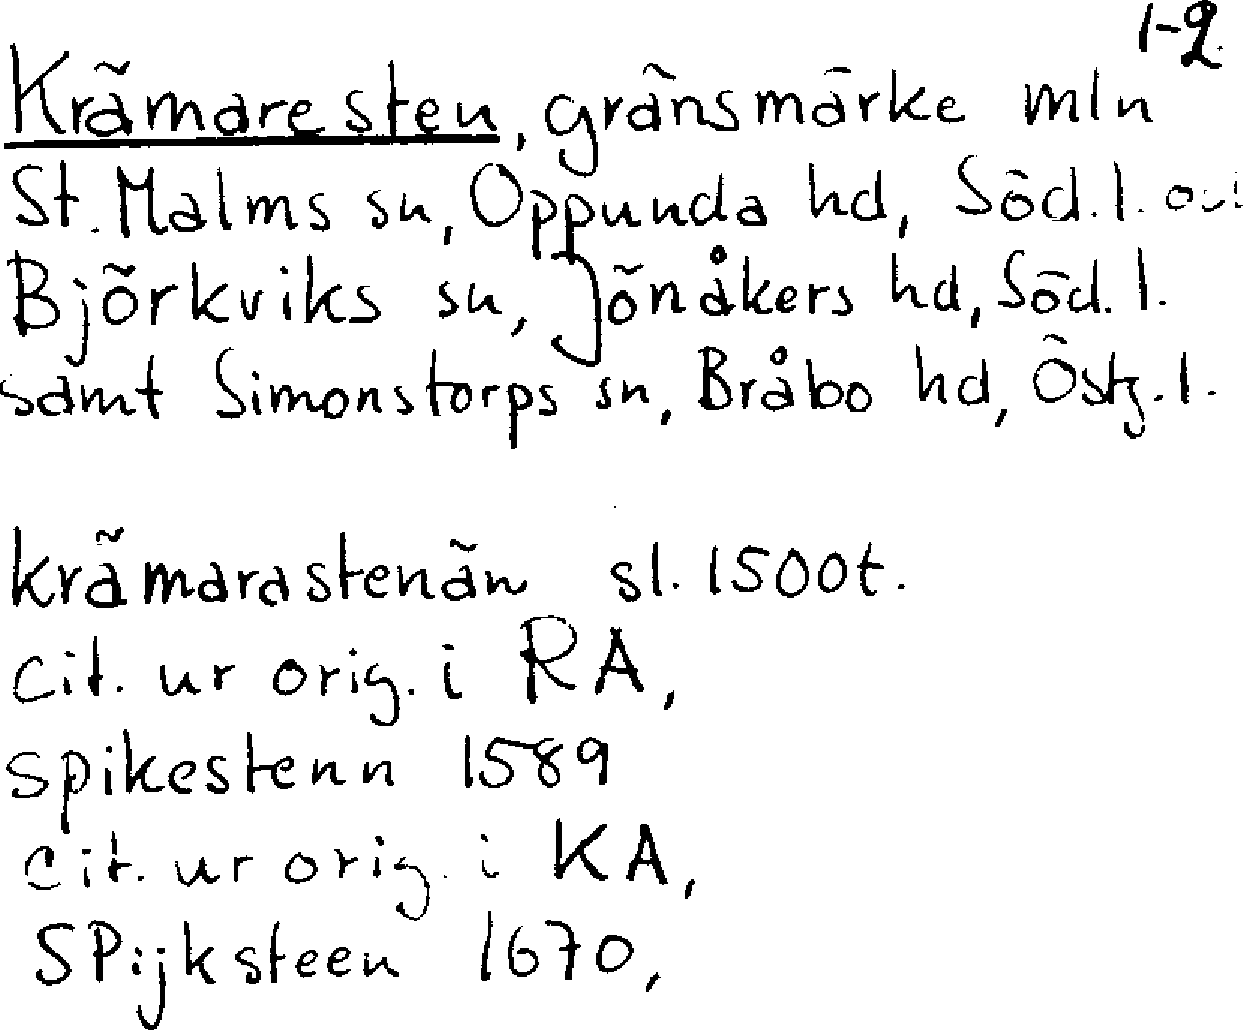 1-2.
Krämaresten, gränsmärke mln
St. Malms sn, Oppunda hd, Söd.l. och
Björkviks sn, Jönåkers hd, Söd.l.
samt Simonstorps sn, Bråbo hd, Östg.l.
krämarastenän sl. 1500t.
cit. ur orig. i RA,
spikestenn 1589
cit. ur orig. i KA,
SPijksteen 1670,